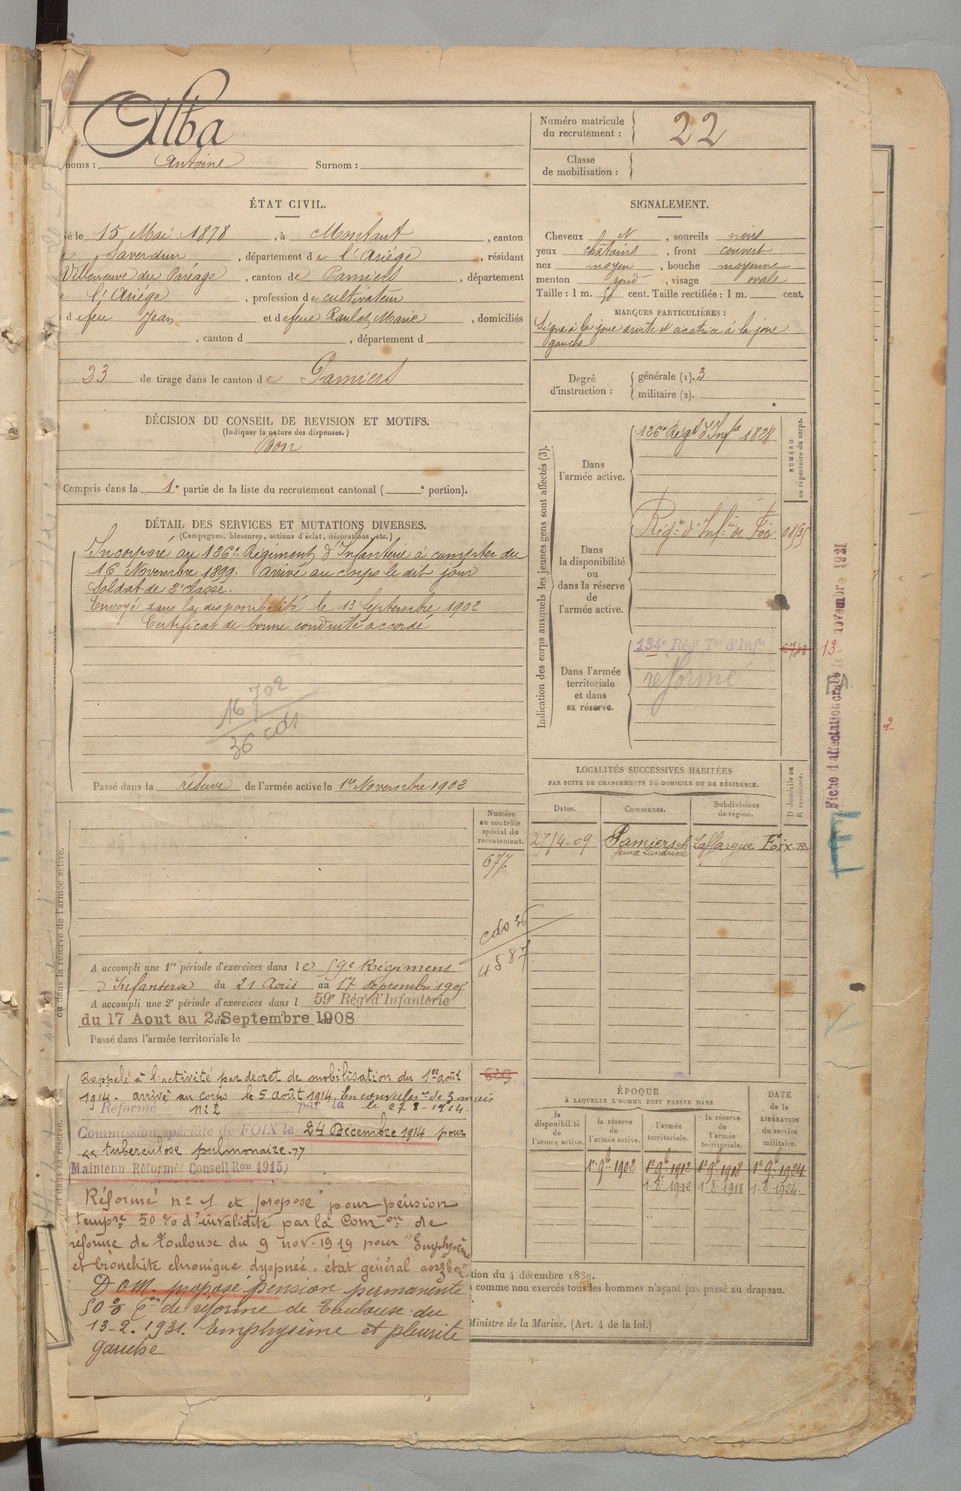 Alba
noms : Antoine Surnom :
Numéro matricule
du recrutement : 22
Classe
de mobilisation :
ÉTAT CIVIL.
é le 15 Mai 1878, à Montaut, canton
Saverdun, département de l'Ariége, résidant
Villeneuve du Paréage, canton de Pamiers, département
l'Ariége, profession de cultivateur
d de feu Jean et de feue Raulet Marie, domiciliés
, canton d , département d
33 de tirage dans le canton de Pamiers
SIGNALEMENT.
Cheveux N, sourcils noirs
yeux chatains, front couvert
nez moyen, bouche moyenne
menton rond, visage ovale
Taille : 1 m. cent. Taille rectifiée : 1 m. cent.
MARQUES PARTICULIÈRES :
à la joue droite et cicatrice à la joue
gauche
Degré
d'instruction :
générale (1). 3
militaire (2).
DÉCISION DU CONSEIL DE REVISION ET MOTIFS.
(Indiquer la nature des dispenses.)
Bon
Compris dans la 1e partie de la liste du recrutement cantonal ( e portion).
DÉTAIL DES SERVICES ET MUTATIONS DIVERSES.
(Campagnes, blessures, actions d'éclat, décorations, etc.)
Incorporé au 126e Régiment d'Infanterie à compter du
16 Novembre 1899. Arrivé au corps le dit jour
Soldat de 2e classe.
Envoyé dans la disponibilité le 13 Septembre 1902
Certificat de bonne conduite accordé
16702
36 cds
Passé dans la réserve de l'armée active le 1er Novembre 1902
Indication des corps auxquels les jeunes gens sont affectés (3).
NUMÉRO
au répertoire du corps.
Dans
l'armée active.
126e Régt d'Infie
Dans
la disponibilité
ou
dans la réserve
de
l'armée active.
Régt d'Infie de Foix
Dans l'armée
territoriale
et dans
sa réserve.
134e Régt Tal d'Infie
réformé
13
Fiche d'affectation novembre 1931
2
LOCALITÉS SUCCESSIVES HABITÉES
PAR SUITE DE CHANGEMENTS DE DOMICILE OU DE RÉSIDENCE.
Dates. Communes. Subdivisions
de région.
D domicile ou
R résidence.
27/4-09 Pamiers Lafargue Foix R
Numéro
au contrôle
spécial du
recrutement.
677
cds 36
4587
ou dans la réserve de l'armée active.
A accompli une 1re période d'exercices dans le 59e Régiment
d'Infanterie du 21 Aout au 17 Septembre 190
A accompli une 2e période d'exercices dans l 59e Régt d'Infanterie
du 17 Aout au 2 Septembre 1908
Passé dans l'armée territoriale le
et dans sa réserve.
Rappelé à l'activité par décret de mobilisation du 1er août
1914. arrivé au corps le 5 août 1914. En convales. de 3 mois
Réformé n°2 par la le 27-8-1914.
Commission spéciale de FOIX le 24 Décembre 1914 pour
"tuberculose pulmonaire."
Maintenu Réformé (Conseil Ron 1915)
Réformé n° 1 et proposé pour pension
tempre 50 % d'invalidité par la Comon de
réforme de Toulouse du 9 nov. 1919 pour "Emphysème
et bronchite chronique dyspnée. état général assez bon"
DOM. proposé pension permanente
50 % Con de réforme de Toulouse du
13-2.1931. Emphysème et pleurite
gauche
ÉPOQUE
À LAQUELLE L'HOMME DOIT PASSER DANS
la
disponibilité
de
l'armée active.
la réserve
de
l'armée active.
l'armée
territoriale.
la réserve
de
l'armée
territoriale.
DATE
de la
LIBÉRATION
du service
militaire.
1er 9bre 1902 1er 9bre 1912 1er 9bre 1918 1er 9bre 1924
1.8.1912 1.8.1918 1.8.1924
tion du 4 décembre 1889.
comme non exercés tous les hommes n'ayant pas passé au drapeau.
Ministre de la Marine. (Art. 4 de la loi.)